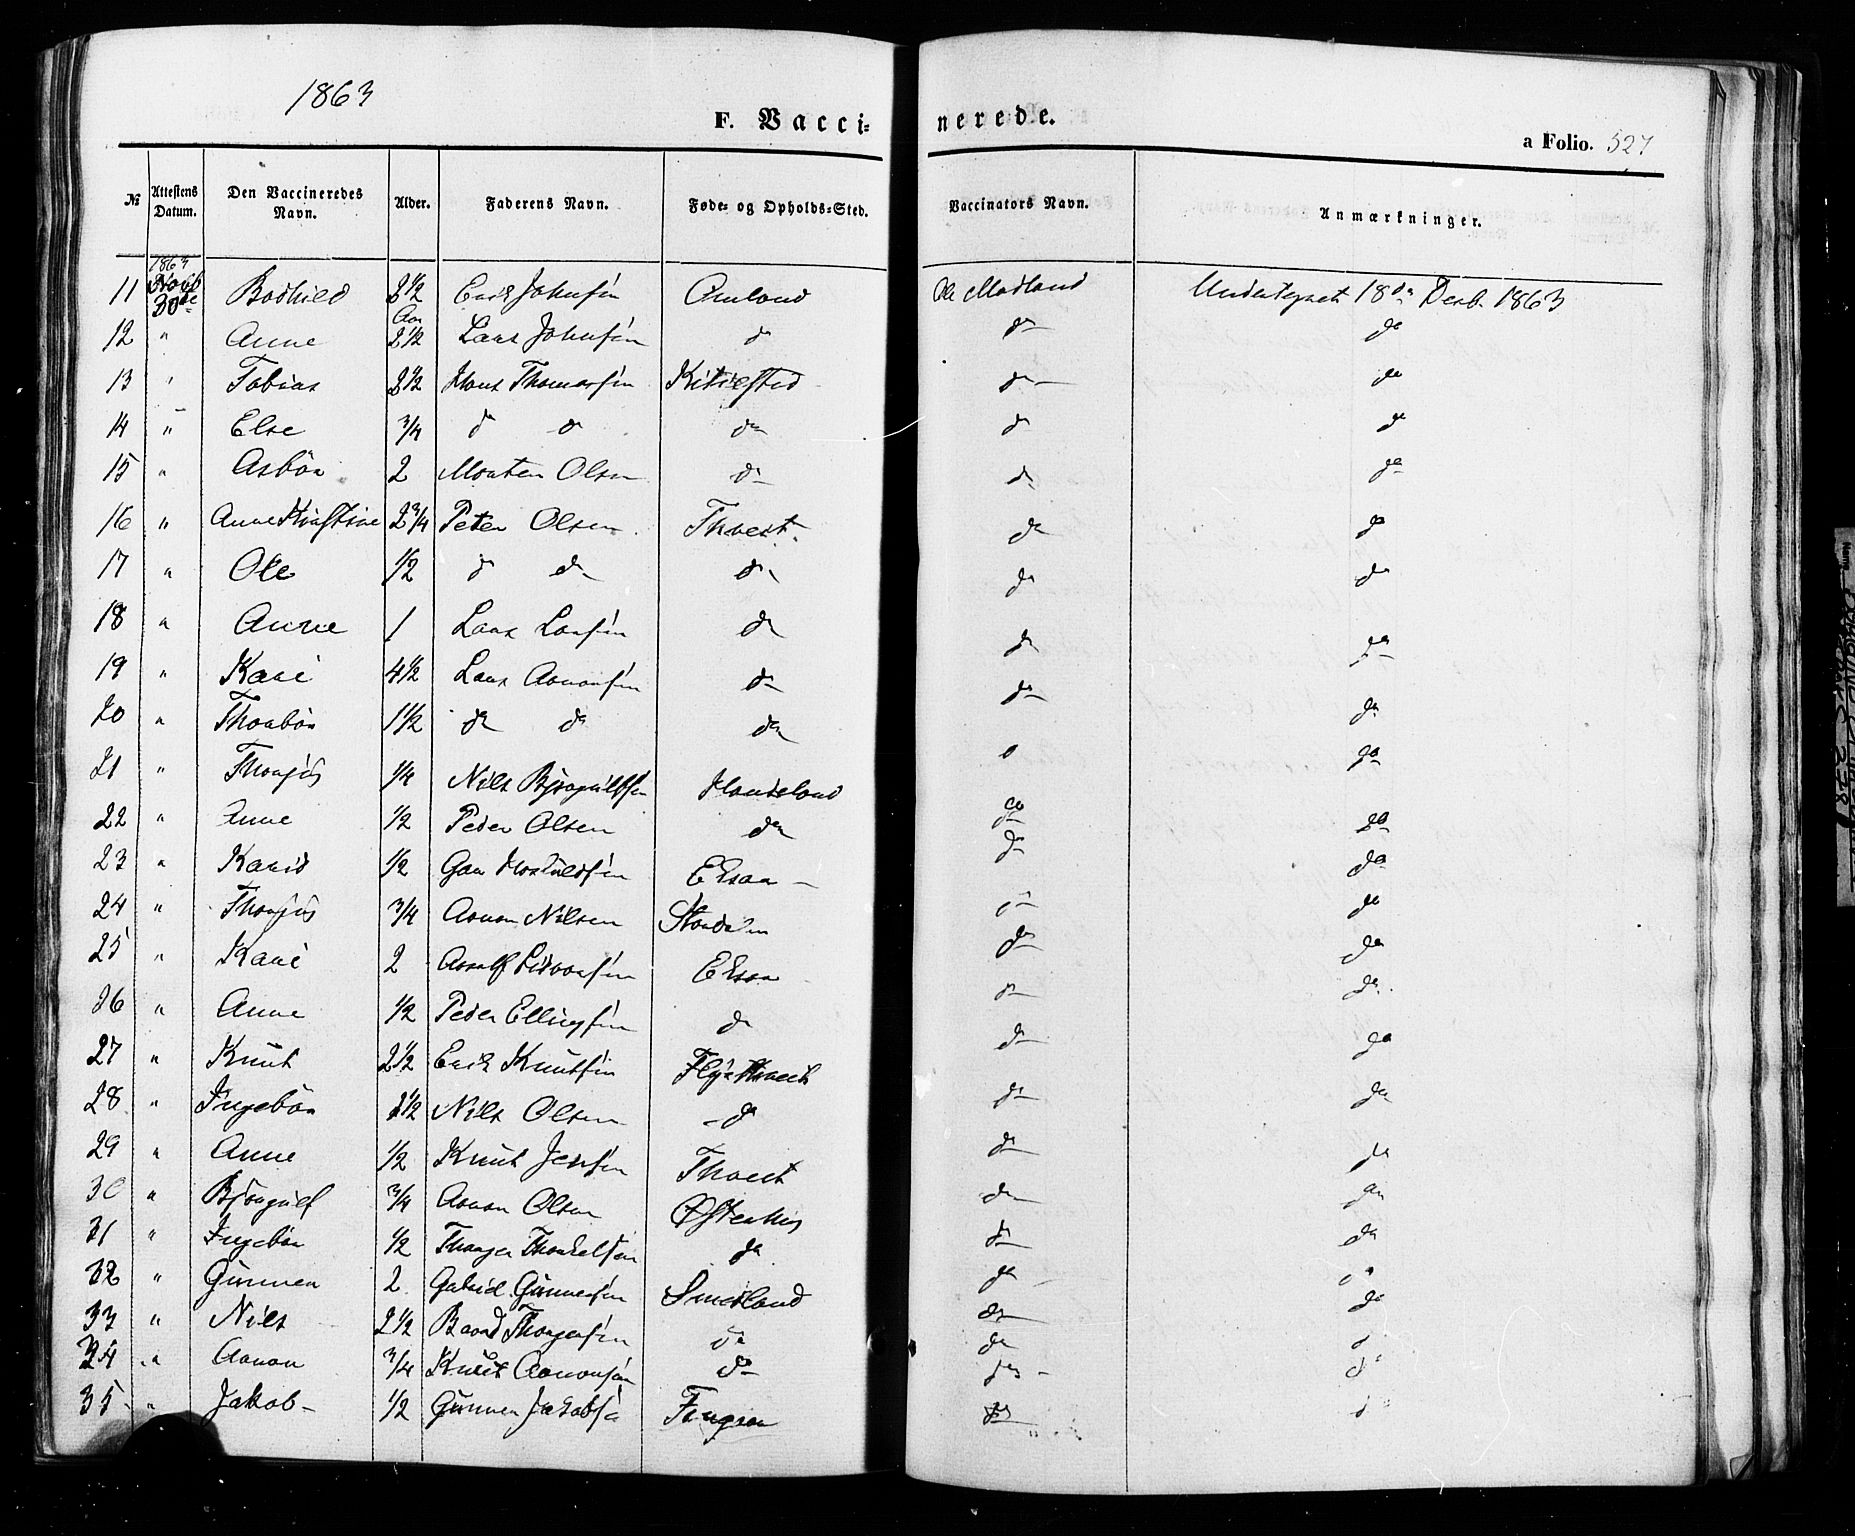 1863
F. Vacci- nerede.
a Folio. 527
№ Attestens Datum. Den Vaccineredes Navn. Alder. Faderens Navn. Føde- og Opholds-Sted. Vaccinators Navn. Anmærkninger.
1863
11 Novb 30de Bodhild 2½ Erik Johnsen Omland Ole Madland Undertegnet 18de Decb. 1863
12 " Anne 2½ Lars Johnsen do do do
13 " Tobias 2½ Hans Thomassen do do
14 " Else ¾ do do do do do
15 " Asbör 2 Morten Olsen do do do
16 " Anne Kirstine 2¾ Peter Olsen Thveit do do
17 " Ole ½ do do do do do
18 " Anne 1 Lars Larsen do do do
19 " Kari 4½ Lars Aanonsen do do do
20 " Thorbör 1½ do do do do do
21 " Thorgus ¼ Nils Bjørgulfsen Haugeland do do
22 " Anne ½ Peder Olsen do do do
23 " Karid ½ do do
24 " Thorgus ¾ Aanon Nilsen do do
25 " Kari 2 do do
26 " Anne ½ Peder Ellingsen do do do
27 " Knut 2½ Erik Knutsen do do
28 " Ingebör 2½ Nils Olsen do do do
29 " Anne ½ Knut Jensen Thveit do do
30 " Bjørgulf ¾ Aanon Olsen Østerhus do do
31 " Ingebör ½ Thorger Thorkelsen do do do
32 " Gunner 2 Gabriel Gunnersen Smeland do do
33 " Nils 2½ Baard Thorgersen do do do
34 " Aanon ¾ Knut Aanonsen do do do
35 " Jakob ½ Gunner Jakobsen do do